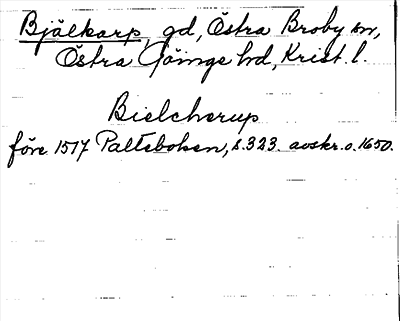 Bjälkarp gd, Östra Broby sn,
Östra Göinge hd, Krist. l.
Bielcherup
före 1517 Palteboken, s. 323. avskr. o. 1650.